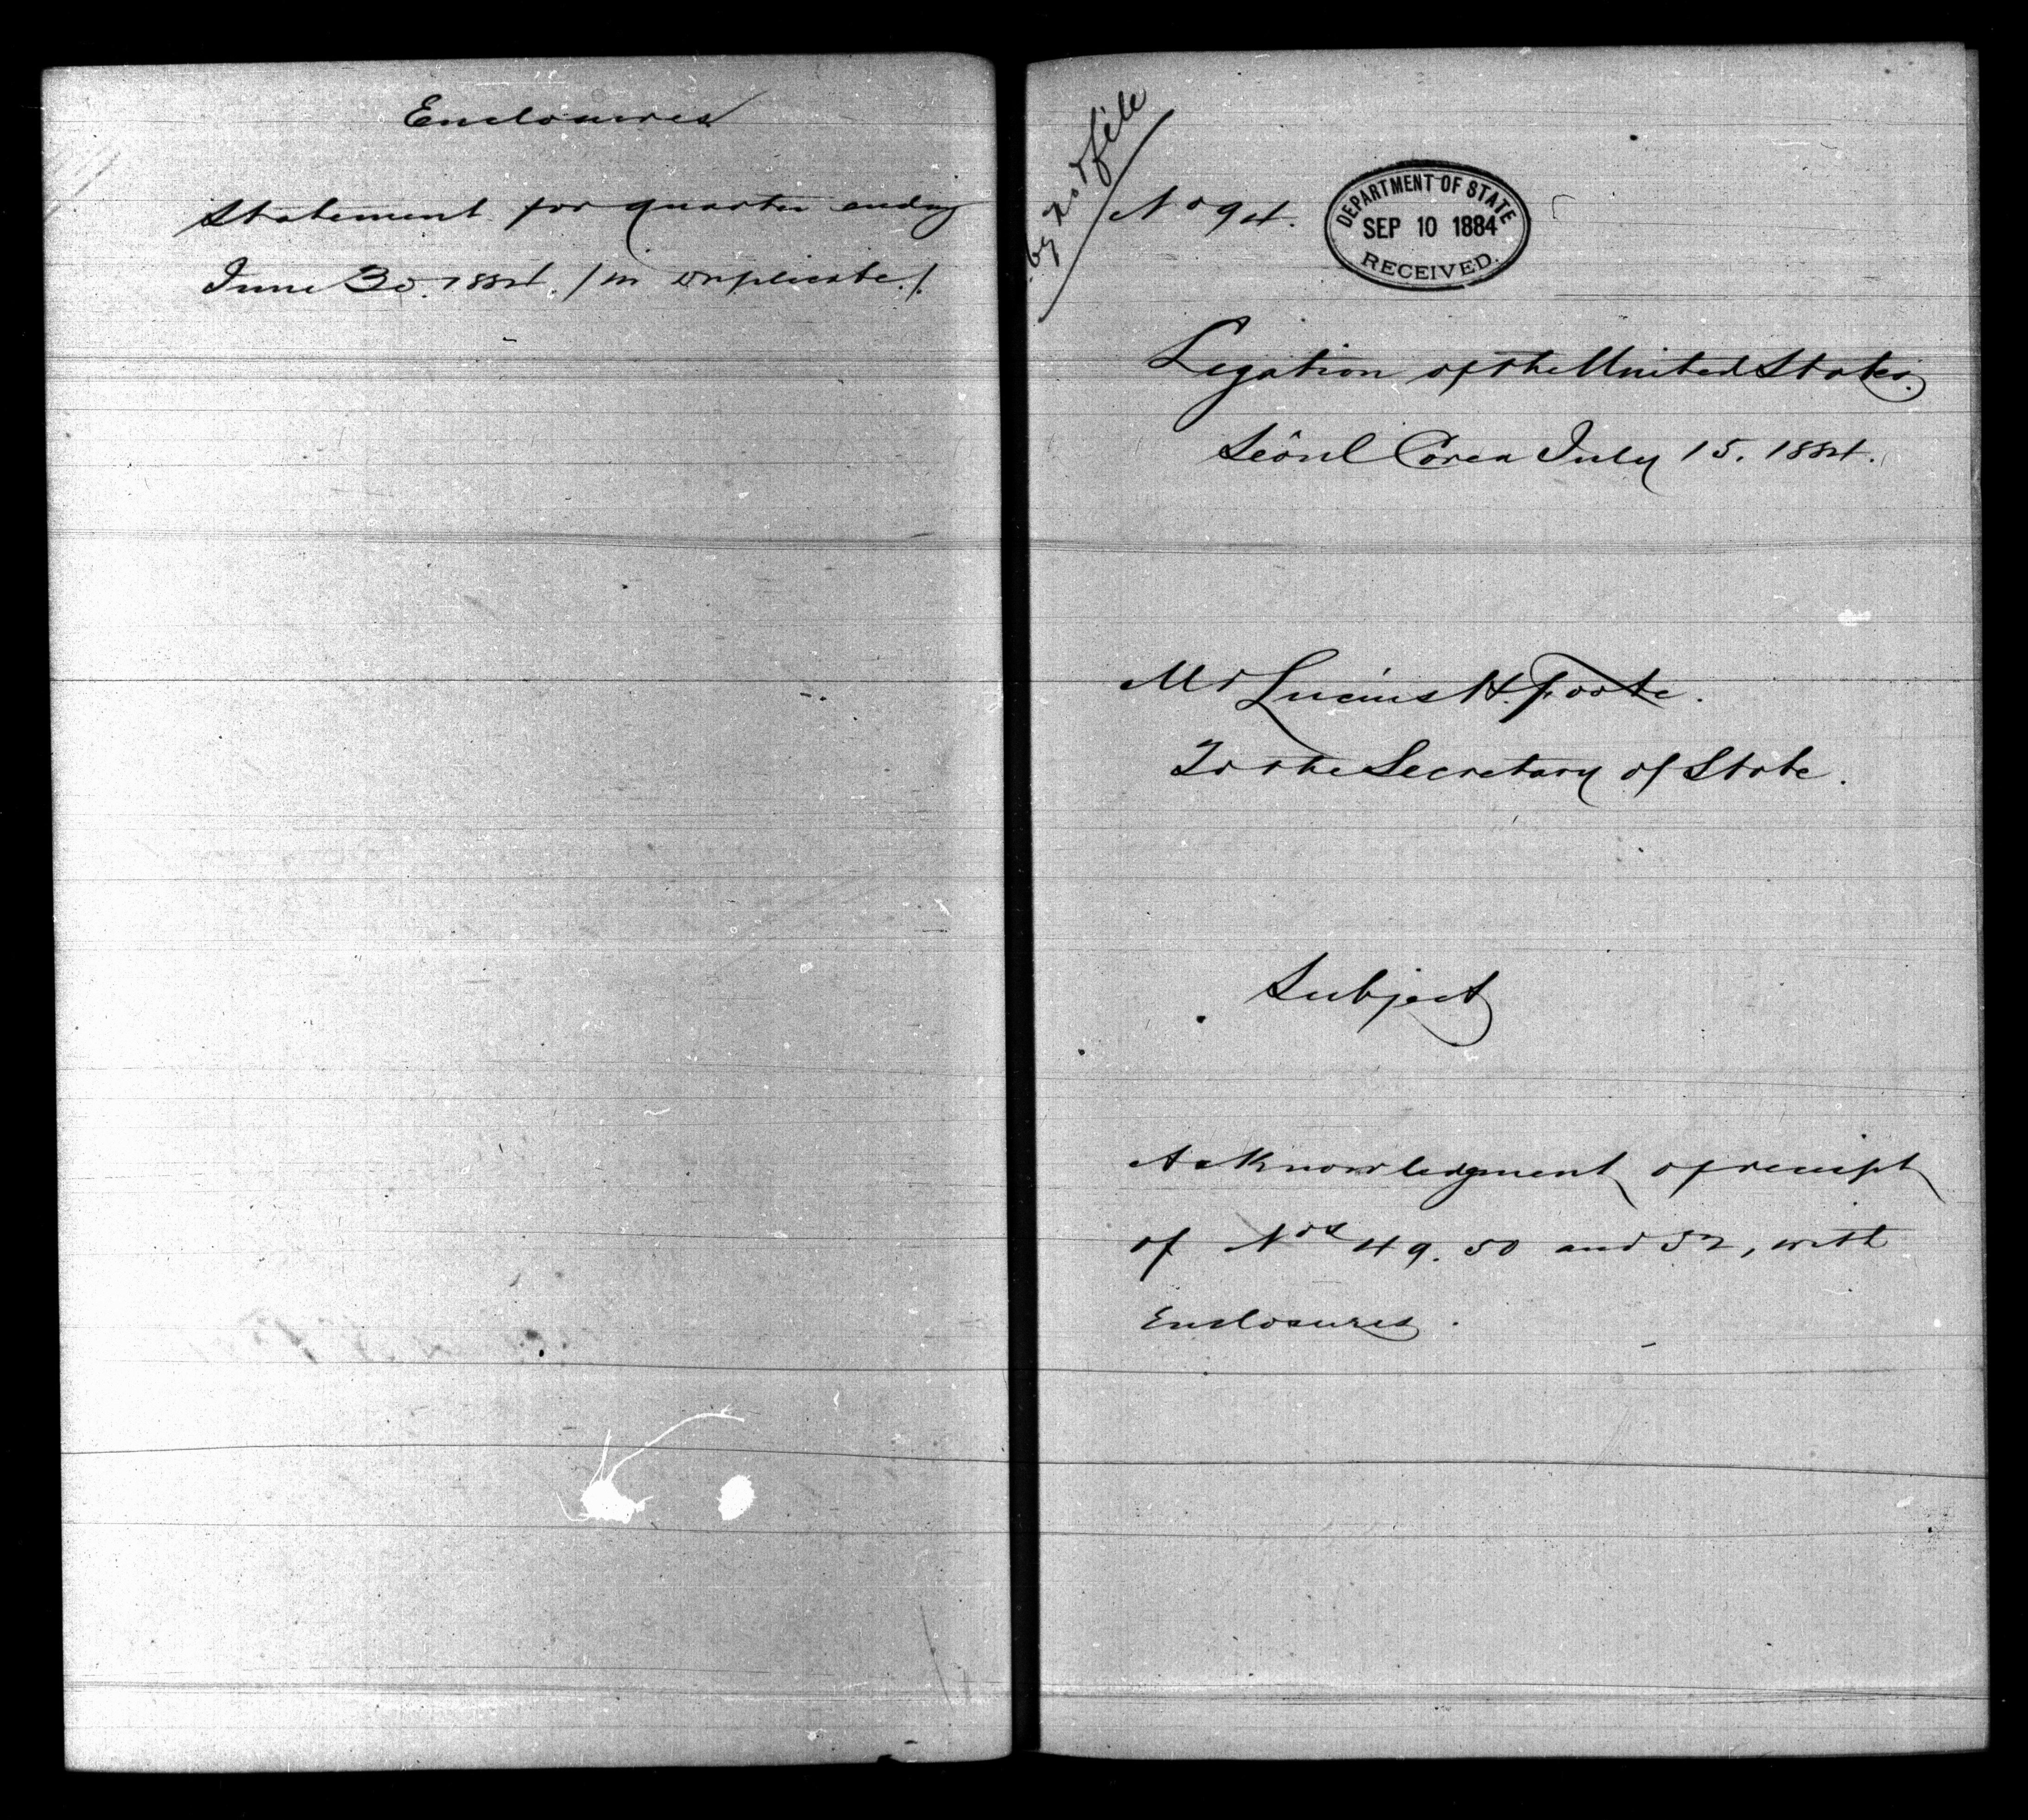 Enclosures
Statement for quarter ending
June 30. 1884. / in duplicate. /.
file
No 94.
DEPARTMENT OF STATE
SEP 10 1884
RECEIVED.
Legation of the United States.
Sêoul Corea July 15. 1884.
Mr Lucius H. Foote.
To the Secretary of State.
Subject
Acknowledgment of receipt
of Nos 49. 50 and 52, with
Enclosures.